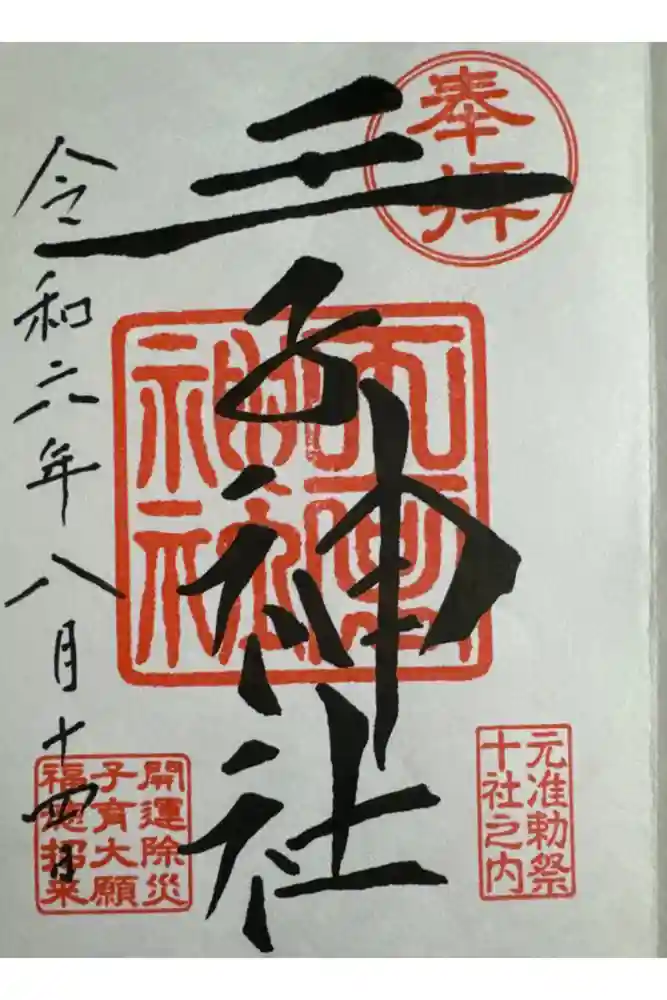 奉拝
元准勅祭
十社之内
王子神社
開運除災
子育大願
福徳招来
令和六年八月十四日